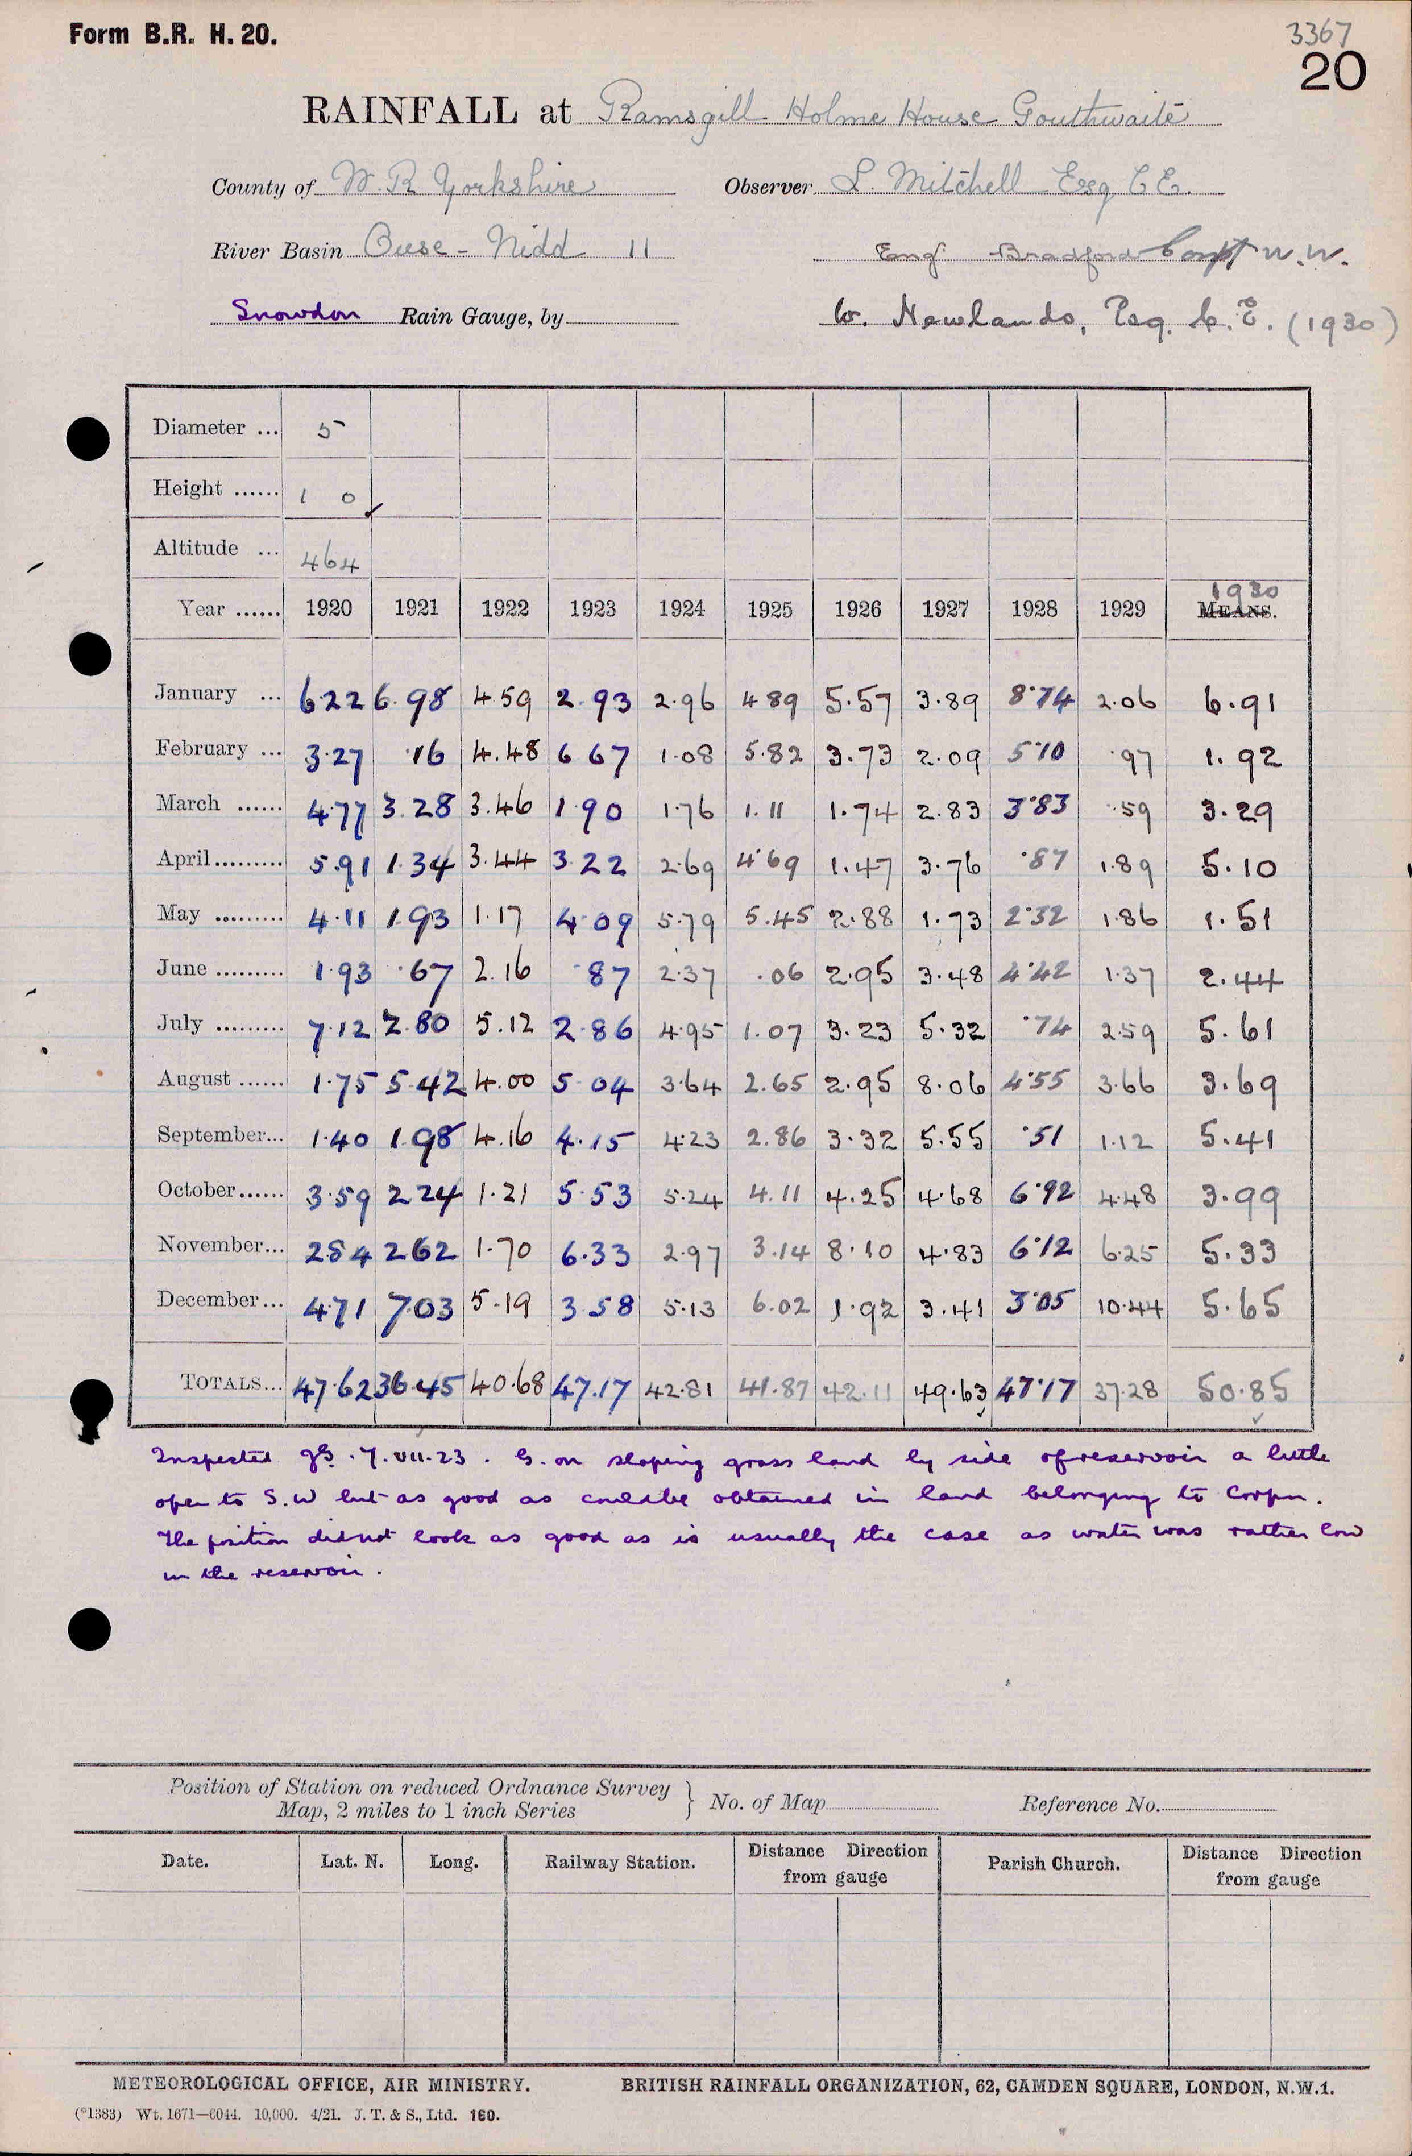 Form B.R. H. 20.
3367
20
RAINFALL at Ramsgill Holme House Gouthwaite
County of W. R Yorkshire Observer L. Mitchell Esq C E.
River Basin Ouse - Nidd 11 Eng^r Bradford Corpt W.W.
Snowdon Rain Gauge, by W. Newlands, Esq. C. E. (1930)
Diameter ... 5
Height ...... 1 0
Altitude ... 464
1930
Year ...... 1920 1921 1922 1923 1924 1925 1926 1927 1928 1929 MEANS.
January ... 6.22 6.98 4.59 2.93 2.96 4.89 5.57 3.89 8.74 2.06 6.91
February ... 3.27 .16 4.48 6.67 1.08 5.82 3.73 2.09 5.10 .97 1.92
March ...... 4.77 3.28 3.46 1.90 1.76 1.11 1.74 2.83 3.83 .59 3.29
April......... 5.91 1.34 3.44 3.22 2.69 4.69 1.47 3.76 .87 1.89 5.10
May ......... 4.11 1.93 1.17 4.09 5.79 5.45 2.88 1.73 2.32 1.86 1.51
June ......... 1.93 .67 2.16 .87 2.37 .06 2.95 3.48 4.42 1.37 2.44
July ......... 7.12 2.80 5.12 2.86 4.95 1.07 3.23 5.32 .74 2.59 5.61
August ...... 1.75 5.42 4.00 5.04 3.64 2.65 2.95 8.06 4.55 3.66 3.69
September... 1.40 1.98 4.16 4.15 4.23 2.86 3.32 5.55 .51 1.12 5.41
October...... 3.59 2.24 1.21 5.53 5.24 4.11 4.25 4.68 6.92 4.48 3.99
November... 2.84 2.62 1.70 6.33 2.97 3.14 8.10 4.83 6.12 6.25 5.33
December... 4.71 7.03 5.19 3.58 5.13 6.02 1.92 3.41 3.05 10.44 5.65
TOTALS... 47.62 36.45 40.68 47.17 42.81 41.87 42.11 49.63 47.17 37.28 50.85
Inspected . 7.VII.23 . G. on sloping grass land by side of reservoir a little
open to S.W but as good as could be obtained in land belonging to Corpn.
The position did not look as good as is usually the case as water was rather low
in the reservoir.
Position of Station on reduced Ordnance Survey
Map, 2 miles to 1 inch Series } No. of Map Reference No.
Date. Lat. N. Long. Railway Station. Distance Direction from gauge Parish Church. Distance Direction from gauge
METEOROLOGICAL OFFICE, AIR MINISTRY. BRITISH RAINFALL ORGANIZATION, 62, CAMDEN SQUARE, LONDON, N.W.1.
(*1383) Wt. 1671—6044. 10,000. 4/21. J. T. & S., Ltd. 160.